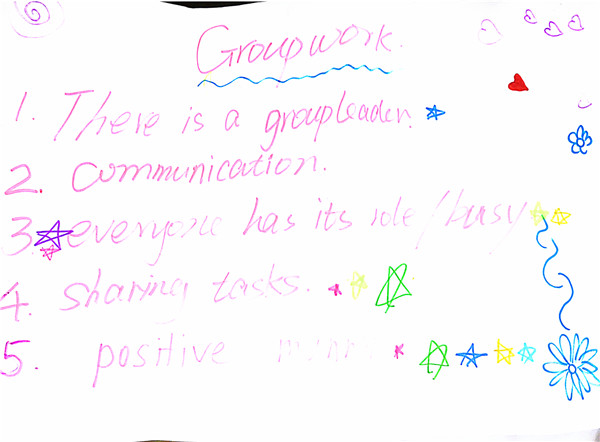 Groupwork.
1. There is a groupleader.
2. communication.
3. everyone has its role/busy
4. sharing tasks.
5. positive